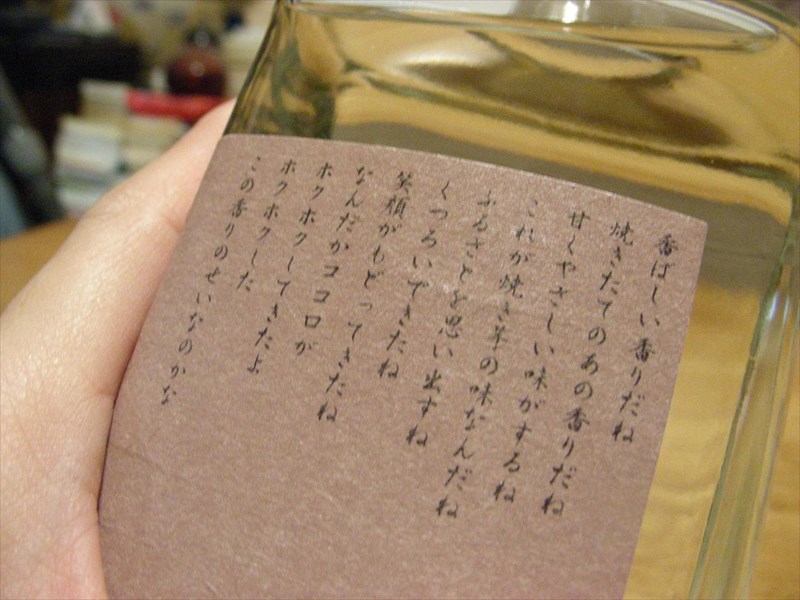 香ばしい香りだね
焼きたてのあの香りだね
甘くやさしい味がするね
これが焼き芋の味なんだね
ふるさとを思い出すね
くつろいできたね
笑顔がもどってきたね
なんだかココロが
ホクホクしてきたよ
ホクホクした
この香りのせいなのかな